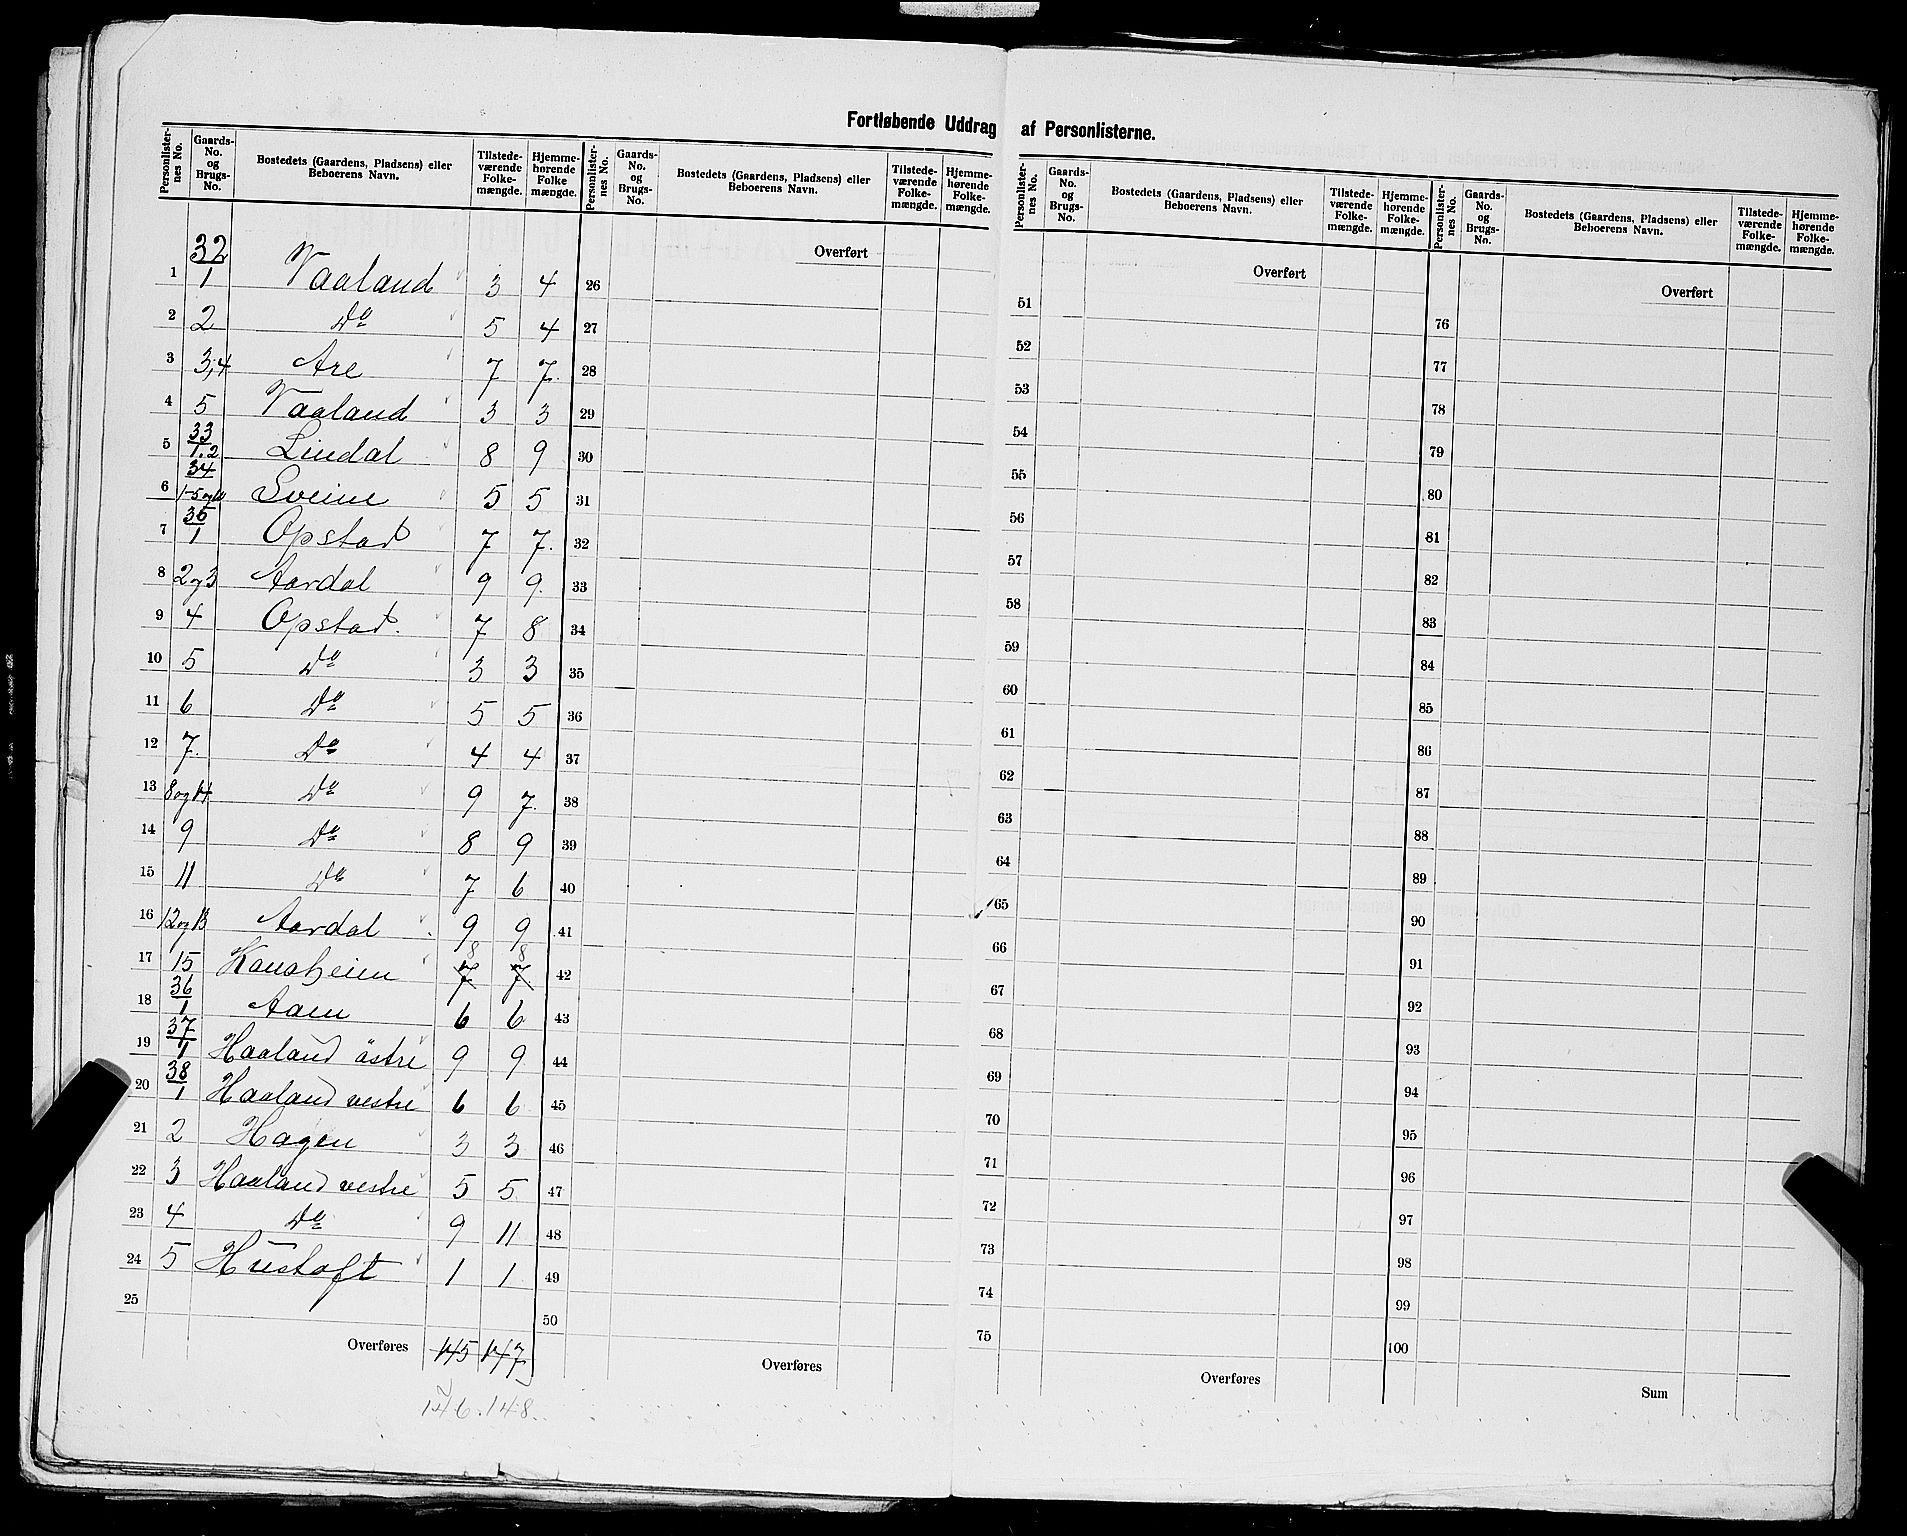 Fortløbende Uddrag af Personlisterne.
Personlister-nes No. | Gaards-No. og Brugs-No. | Bostedets (Gaardens, Pladsens) eller Beboerens Navn. | Tilstede-værende Folke-mængde. | Hjemme-hørende Folke mængde.
1 | 32/1 | Vaaland | 3 | 4
2 | 2 | Do | 5 | 4
3 | 3,4 | Are | 7 | 7.
4 | 5 | Vaaland | 3 | 3
5 | 33/1.2 | Lindal | 8 | 9
6 | 34/1-5 og 10 | Sveime | 5 | 5
7 | 35/1 | Opstad | 7 | 7.
8 | 2 og 3 | Aardal | 9 | 9.
9 | 4 | Opstad. | 7 | 8
10 | 5 | Do | 3 | 3
11 | 6 | Do | 5 | 5
12 | 7. | Do | 4 | 4
13 | 8 og 14 | Do | 9 | 7.
14 | 9 | Do | 8 | 9
15 | 11 | Do | 7 | 6
16 | 12 og 13 | Aardal | 9 | 9
17 | 15 | Kansheim | 7 8 | 7 8
18 | 36/1 | Aam | 6 | 6
19 | 37/1 | Haaland östre | 9 | 9.
20 | 38/1 | Haaland vestre | 6 | 6
21 | 2 | Hagen | 3 | 3
22 | 3 | Haaland vestre | 5 | 5
23 | 4 | Do | 9 | 11
24 | 5 | Hustoft | 1 | 1
25
Overføres | 145 | 147
146. 148.
Personlister-nes No. | Gaards-No. og Brugs-No. | Bostedets (Gaardens, Pladsens) eller Beboerens Navn. | Tilstede-værende Folke-mængde. | Hjemme-hørende Folke-mængde.
Overført
26
27
28
29
30
31
32
33
34
35
36
37
38
39
40
41
42
43
44
45
46
47
48
49
50
Overføres
Personlister-nes No. | Gaards-No. og Brugs-No. | Bostedets (Gaardens, Pladsens) eller Beboerens Navn. | Tilstede-værende Folke-mængde. | Hjemme-hørende Folke-mængde.
Overført
51
52
53
54
55
56
57
58
59
60
61
62
63
64
65
66
67
68
69
70
71
72
73
74
75
Overføres
Personlister-nes No. | Gaards-No. og Brugs-No. | Bostedets (Gaardens, Pladsens) eller Beboerens Navn. | Tilstede-værende Folke-mængde. | Hjemme-hørende Folke-mængde.
Overført
76
77
78
79
80
81
82
83
84
85
86
87
88
89
90
91
92
93
94
95
96
97
98
99
100
Sum